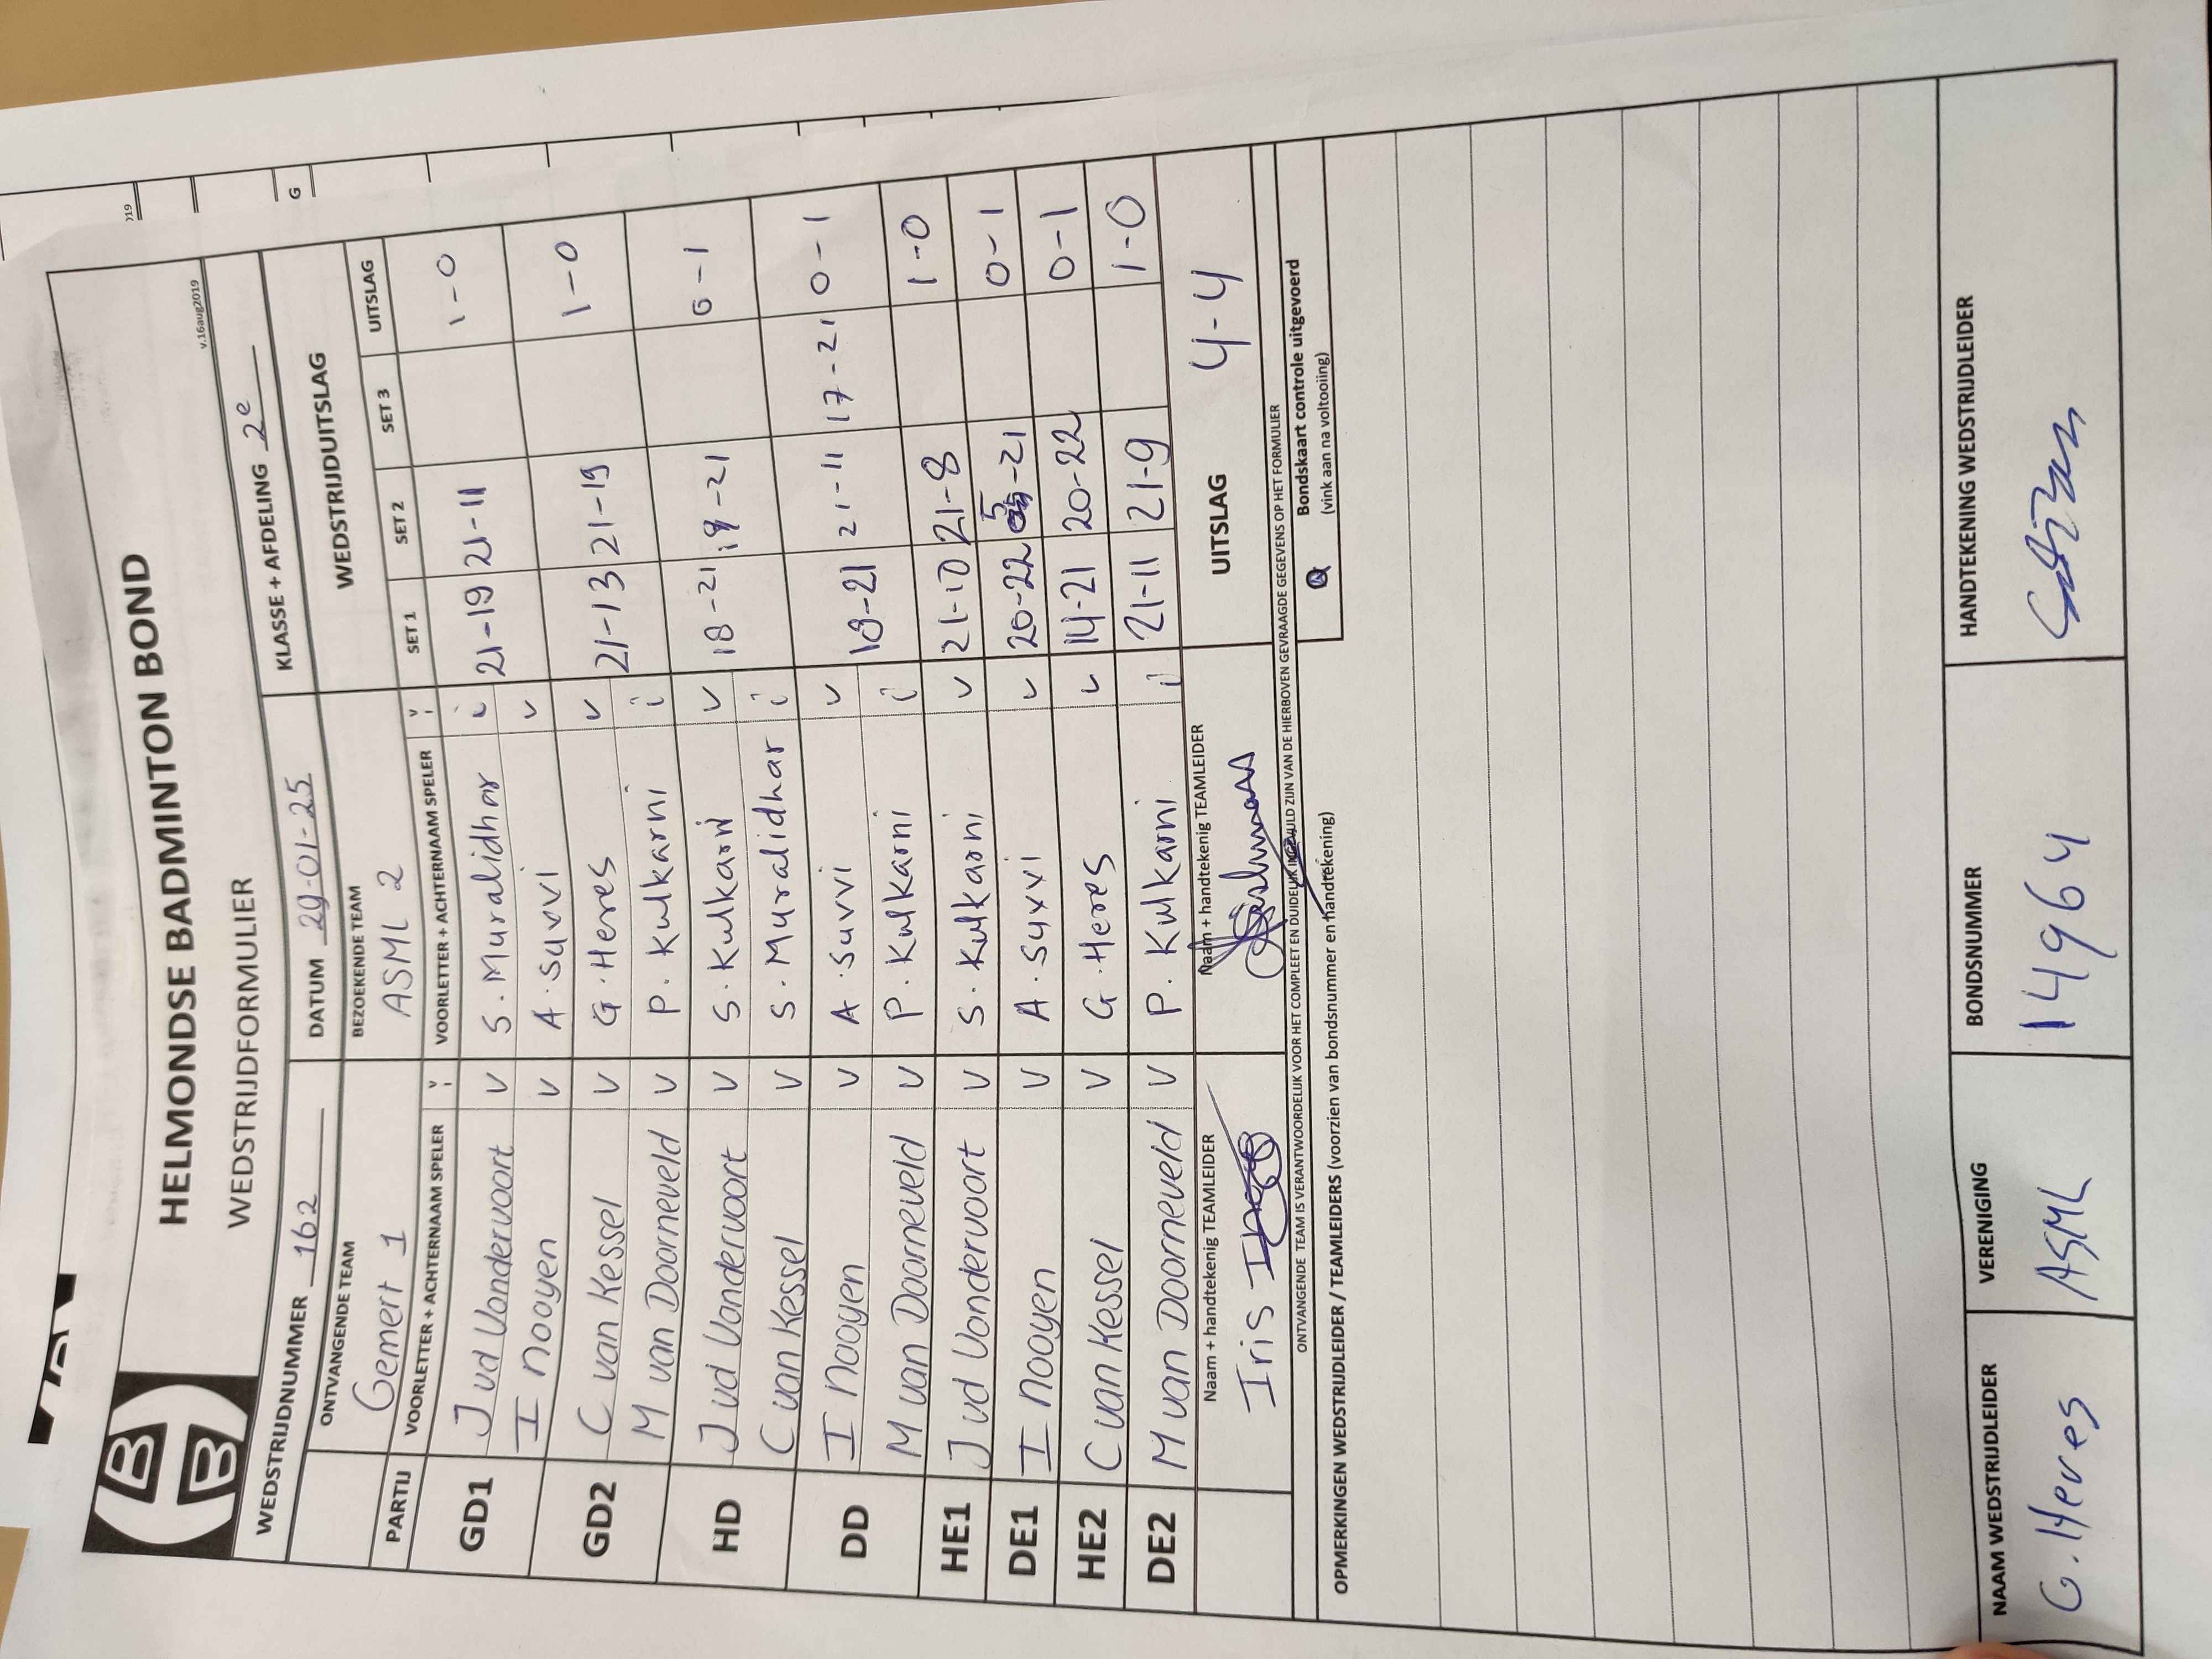 HELMONDSE BADMINTON BOND
WEDSTRIJDFORMULIER
v.16aug2019
WEDSTRIJDNUMMER 162 DATUM 29-01-25 KLASSE + AFDELING 2e
ONTVANGENDE TEAM BEZOEKENDE TEAM WEDSTRIJDUITSLAG
Gemert 1 ASML 2
PARTIJ VOORLETTER + ACHTERNAAM SPELER V/I VOORLETTER + ACHTERNAAM SPELER V/I SET 1 SET 2 SET 3 UITSLAG
GD1 J vd Vondervoort V S. Muralidhar i 21-19 21-11 1-0
I Nooyen V A. Suvvi V
GD2 C van Kessel V G. Heres V 21-13 21-19 1-0
M van Doorneveld V P. Kulkarni i
HD J vd Vondervoort V S. Kulkarni V 18-21 19-21 0-1
C van Kessel V S. Muralidhar i
DD I Nooyen V A. Suvvi V 18-21 21-11 17-21 0-1
M van Doorneveld V P. Kulkarni i
HE1 J vd Vondervoort V S. Kulkarni V 21-10 21-8 1-0
DE1 I Nooyen V A. Suvvi V 20-22 5-21 0-1
HE2 C van Kessel V G. Heres V 14-21 20-22 0-1
DE2 M van Doorneveld V P. Kulkarni i 21-11 21-9 1-0
Naam + handtekenig TEAMLEIDER Naam + handtekenig TEAMLEIDER UITSLAG 4-4
Iris
ONTVANGENDE TEAM IS VERANTWOORDELIJK VOOR HET COMPLEET EN DUIDELIJK INGEVULD ZIJN VAN DE HIERBOVEN GEVRAAGDE GEGEVENS OP HET FORMULIER
Bondskaart controle uitgevoerd
(vink aan na voltooiing)
OPMERKINGEN WEDSTRIJDLEIDER / TEAMLEIDERS (voorzien van bondsnummer en handtekening)
NAAM WEDSTRIJDLEIDER VERENIGING BONDSNUMMER HANDTEKENING WEDSTRIJDLEIDER
G. Heres ASML 14964